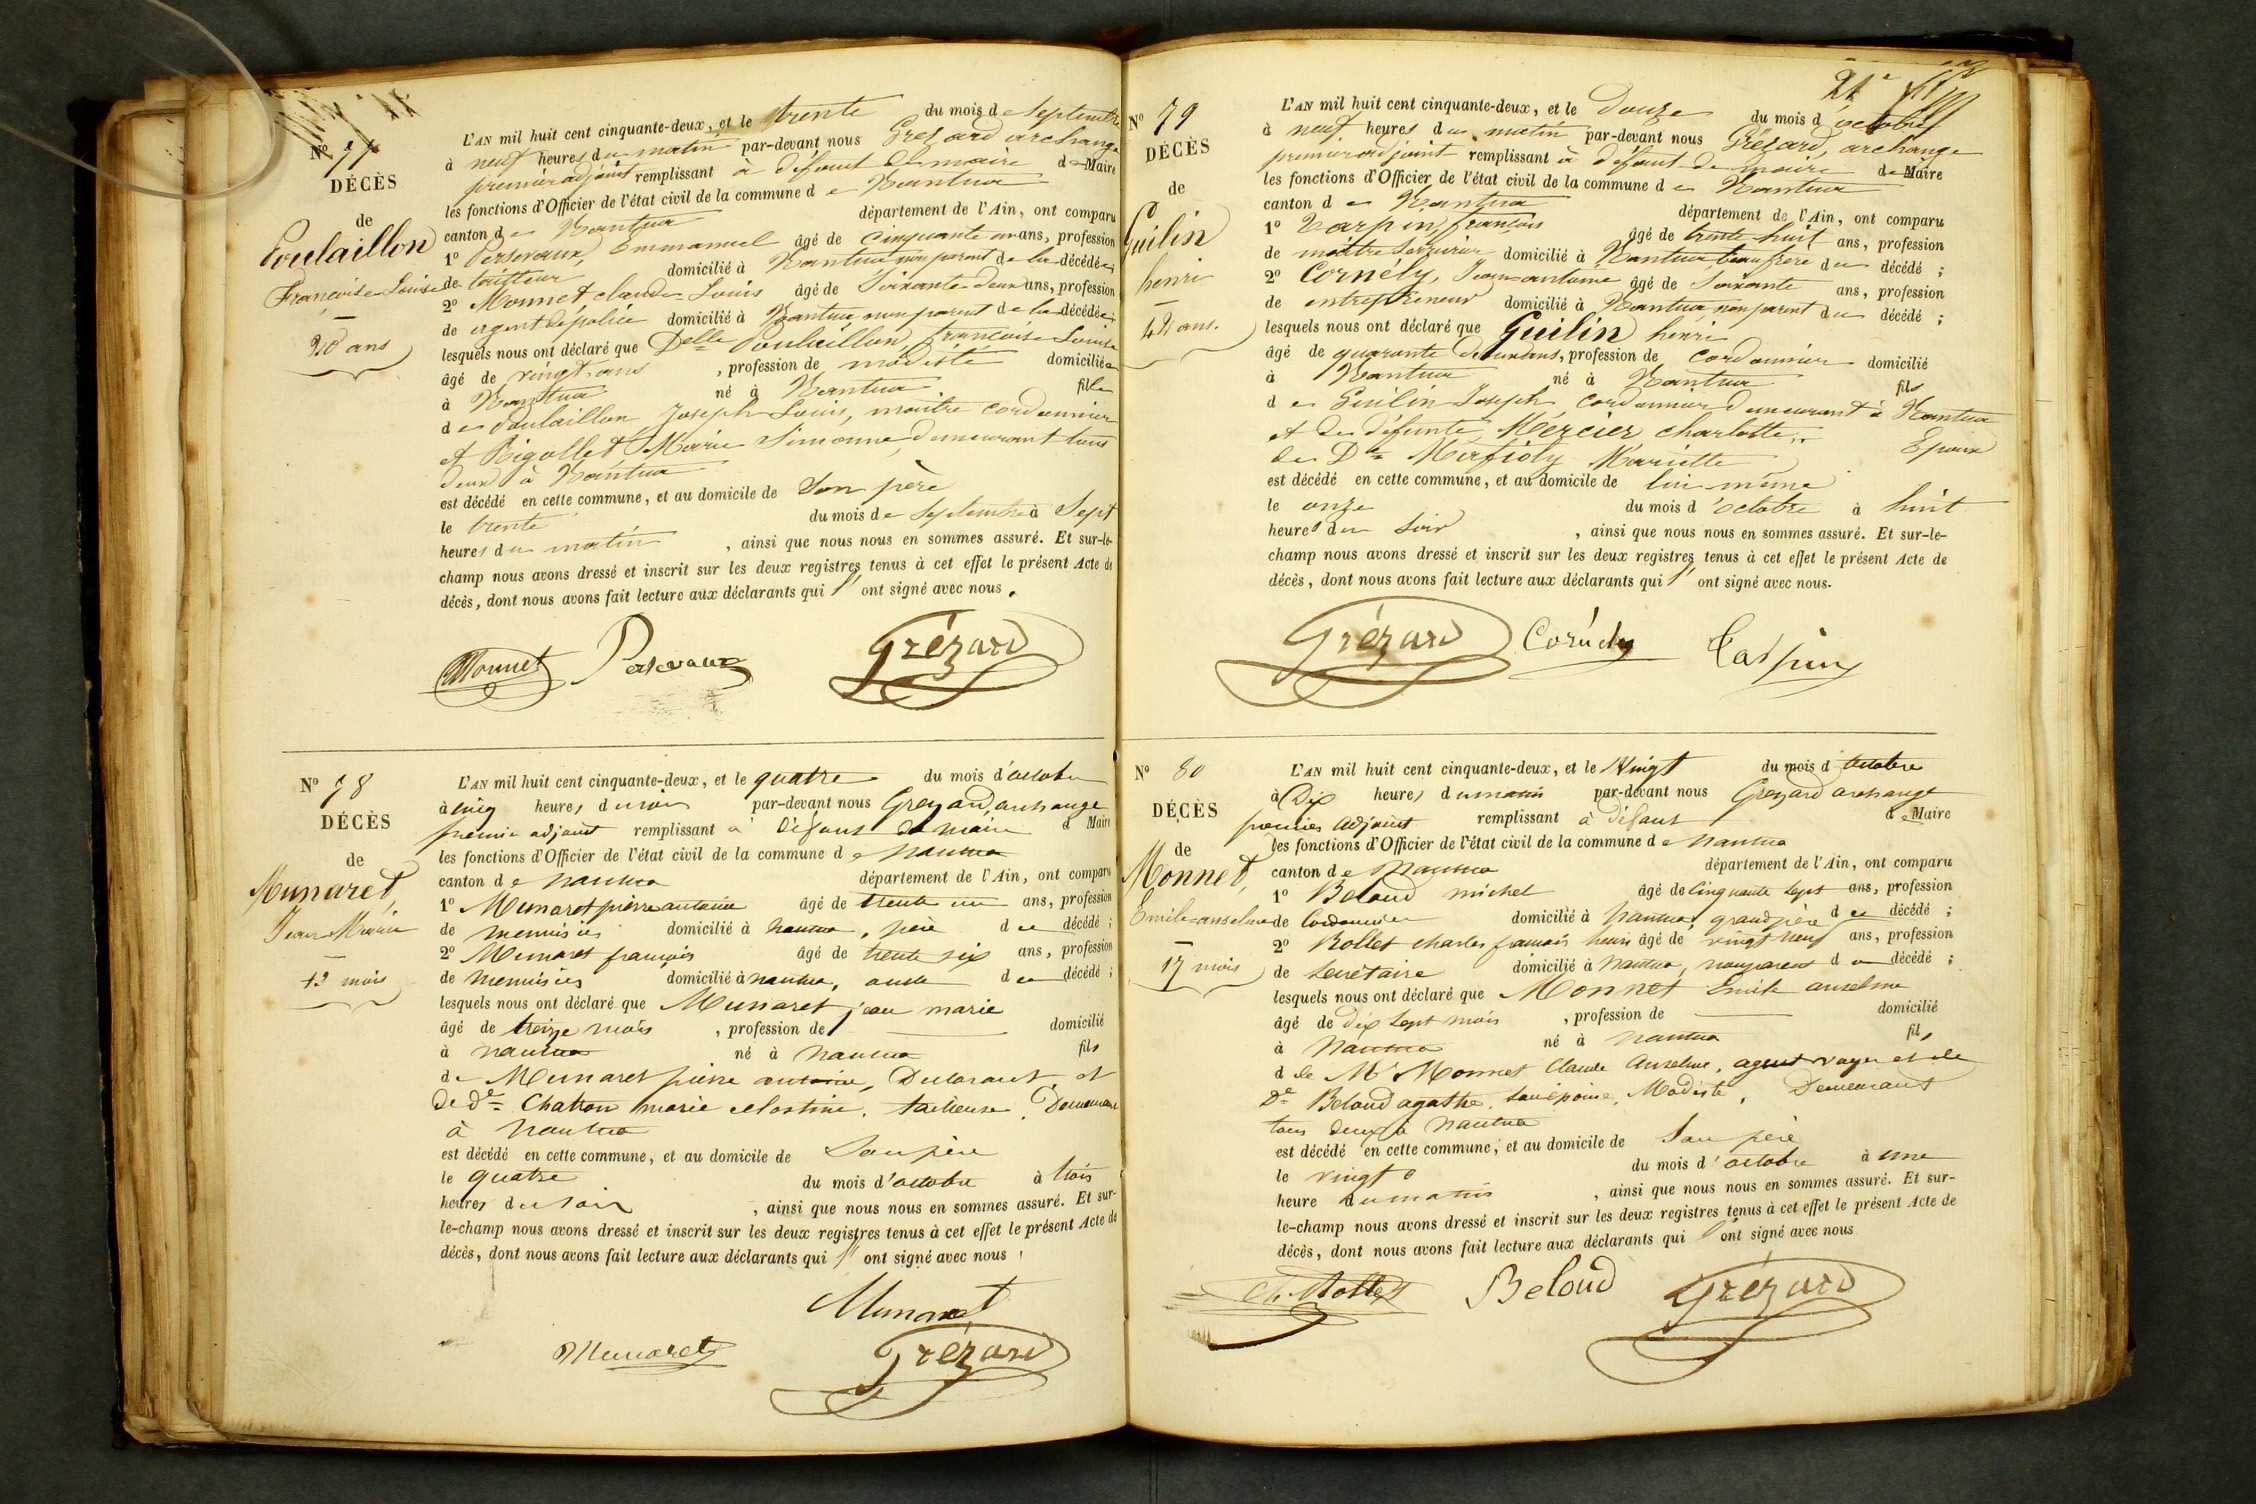 Nº 77
DÉCÈS
de
Poulaillon
Françoise Louise
20 ans
L'AN mil huit cent cinquante-deux, et le trente du mois de Septembre
à neuf heures du matin par-devant nous Grézard archange
premier adjoint remplissant à défaut de maire de Maire
les fonctions d'Officier de l'état civil de la commune de Nantua
canton de Nantua département de l'Ain, ont comparu
1º Persevaux Emmanuel âgé de cinquante un ans, profession
de domicilié à Nantua non parent de la décédée;
2º Monnet claude Louis âgé de Soixante-deux ans, profession
de agent de police domicilié à Nantua non parent de la décédée;
lesquels nous ont déclaré que Delle Poulaillon, françoise Louise
âgé de vingt ans, profession de modiste domiciliée
à Nantua né à Nantua fille
de Poulaillon Joseph Louis, maitre cordonnier
et Rigollet Marie Simonne, demeurant tous
deux à Nantua
est décédé en cette commune, et au domicile de Son père
le trente du mois de Septembre à Sept
heures du matin, ainsi que nous nous en sommes assuré. Et sur-le-
champ nous avons dressé et inscrit sur les deux registres tenus à cet effet le présent Acte de
décès, dont nous avons fait lecture aux déclarants qui ont signé avec nous.
Monnet Persevaux Grézard
Nº 78
DÉCÈS
de
Munaret,
Jean Marie
13 mois
L'AN mil huit cent cinquante-deux, et le quatre du mois d'octobre
à cinq heures du soir par-devant nous Grezard, archange
premier adjoint remplissant à défaut de maire d Maire
les fonctions d'Officier de l'état civil de la commune de Nantua
canton de Nantua département de l'Ain, ont comparu
1º Munaret pierre antoine âgé de trente un ans, profession
de menuisier domicilié à Nantua, père du décédé;
2º Munaret françois âgé de trente six ans, profession
de menuisier domicilié à nantua, oncle du décédé;
lesquels nous ont déclaré que Munaret jean marie
âgé de treize mois, profession de domicilié
à nantua né à Nantua fils
de Munaret pierre antoine, Déclarant, et
de de Chatron marie celestine, tailleuse, Demeurant
à Nantua
est décédé en cette commune, et au domicile de Son père
le quatre du mois d'octobre à trois
heures du soir, ainsi que nous nous en sommes assuré. Et sur-
le-champ nous avons dressé et inscrit sur les deux registres tenus à cet effet le présent Acte de
décès, dont nous avons fait lecture aux déclarants qui ont signé avec nous
Munaret
Munaret Grézard
21e
Nº 79
DÉCÈS
de
Guilin
henri
42 ans.
L'AN mil huit cent cinquante-deux, et le Douze du mois d octobre
à neuf heures du matin par-devant nous Grézard, archange
premier adjoint remplissant à défaut de maire de Maire
les fonctions d'Officier de l'état civil de la commune de Nantua
canton de Nantua département de l'Ain, ont comparu
1º françois âgé de trente huit ans, profession
de maître Serrurier domicilié à Nantua, beau frère du décédé;
2º Cornély, Jean antoine âgé de Soixante ans, profession
de entrepreneur domicilié à Nantua, non parent du décédé;
lesquels nous ont déclaré que Guilin henri
âgé de quarante deux ans, profession de cordonnier domicilié
à Nantua né à Nantua fils
de Guilin Joseph cordonnier demeurant à Nantua
et de défunte Mercier, charlotte, Epoux
de De Mariette
est décédé en cette commune, et au domicile de lui même
le onze du mois d'octobre à huit
heures du Soir, ainsi que nous nous en sommes assuré. Et sur-le-
champ nous avons dressé et inscrit sur les deux registres tenus à cet effet le présent Acte de
décès, dont nous avons fait lecture aux déclarants qui ont signé avec nous.
Grézard Cornély
Nº 80
DÉCÈS
de
Monnet,
Emile anselme
17 mois
L'AN mil huit cent cinquante-deux, et le Vingt du mois d octobre
à Dix heures du matin par-devant nous Grezard archange
premier adjoint remplissant à défaut de Maire
les fonctions d'Officier de l'état civil de la commune de Nantua
canton de Nantua département de l'Ain, ont comparu
1º Beloud michel âgé de cinquante sept ans, profession
de Cordonnier domicilié à Nantua, grand père du décédé;
2º Rollet charles françois henri âgé de vingt neuf ans, profession
de Secrétaire domicilié à Nantua, non parent du décédé;
lesquels nous ont déclaré que Monnet Emile anselme
âgé de dix Sept mois, profession de domicilié
à Nantua né à Nantua fils
d de Mr Monnet Claude Anselme, agent voyer et de
De Beloud agathe, Son épouse, Modiste, Demeurant
tous deux à Nantua
est décédé en cette commune, et au domicile de Son père
le vingt du mois d'octobre à une
heure du matin, ainsi que nous nous en sommes assuré. Et sur-
le-champ nous avons dressé et inscrit sur les deux registres tenus à cet effet le présent Acte de
décès, dont nous avons fait lecture aux déclarants qui ont signé avec nous
Ch. Rollet Beloud Grézard